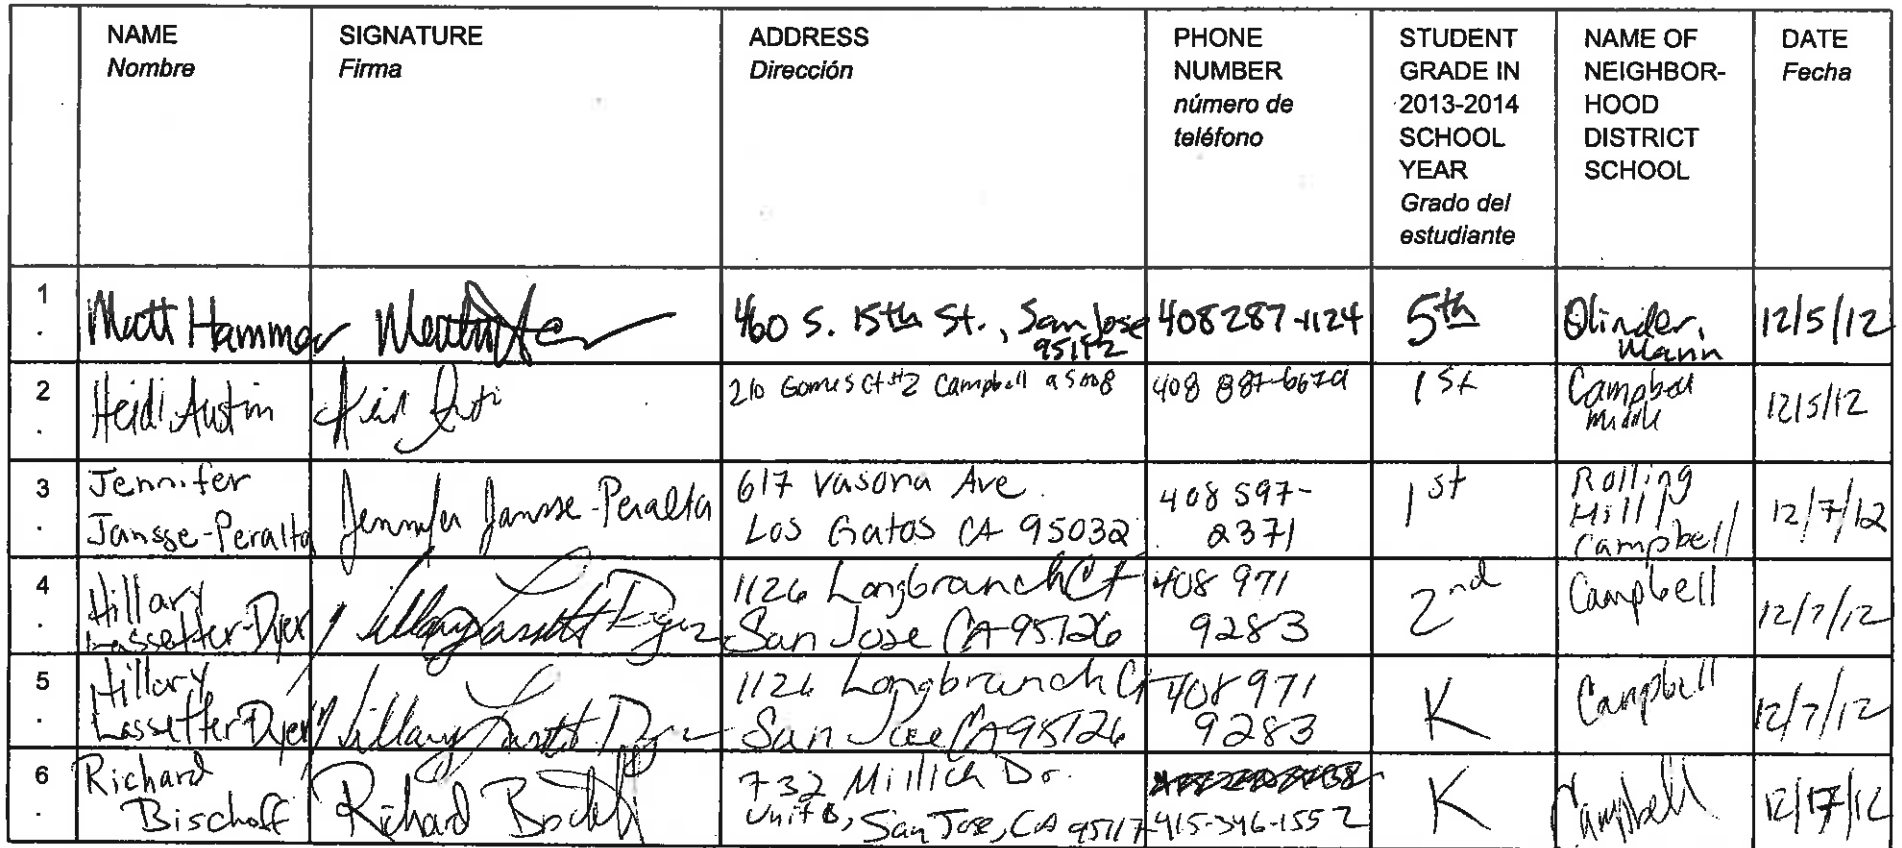 NAME
Nombre
SIGNATURE
Firma
ADDRESS
Dirección
PHONE
NUMBER
número de
teléfono
STUDENT
GRADE IN
2013-2014
SCHOOL
YEAR
Grado del
estudiante
NAME OF
NEIGHBOR-
HOOD
DISTRICT
SCHOOL
DATE
Fecha
1
.
Matt Hammer
460 S. 15th St., San Jose
95112
408 287-1124
5th
Olinder,
Mann
12/5/12
2
.
Heidi Austin
210 Gomes Ct #2 Campbell
408
1st
Campbell
Middle
12/5/12
3
.
Jennifer
Jansse-Peralta
Jennifer Jansse-Peralta
617 Vasona Ave.
Los Gatos CA 95032
408 597-
2371
1st
Rolling
Hill/
Campbell
12/7/12
4
.
Hillary
Lassetter-Dyer
Hillary Lassetter Dyer
1126 Longbranch Ct
San Jose CA 95126
408 971
9283
2nd
Campbell
12/7/12
5
.
Hillary
Lassetter Dyer
Hillary Lassetter Dyer
1126 Longbranch Ct
San Jose CA 95126
408 971
9283
K
Campbell
12/7/12
6
.
Richard
Bischoff
Richard Bischoff
732 Millich Dr.
Unit B, San Jose, CA 95117
415-346-1552
K
Campbell
12/17/12